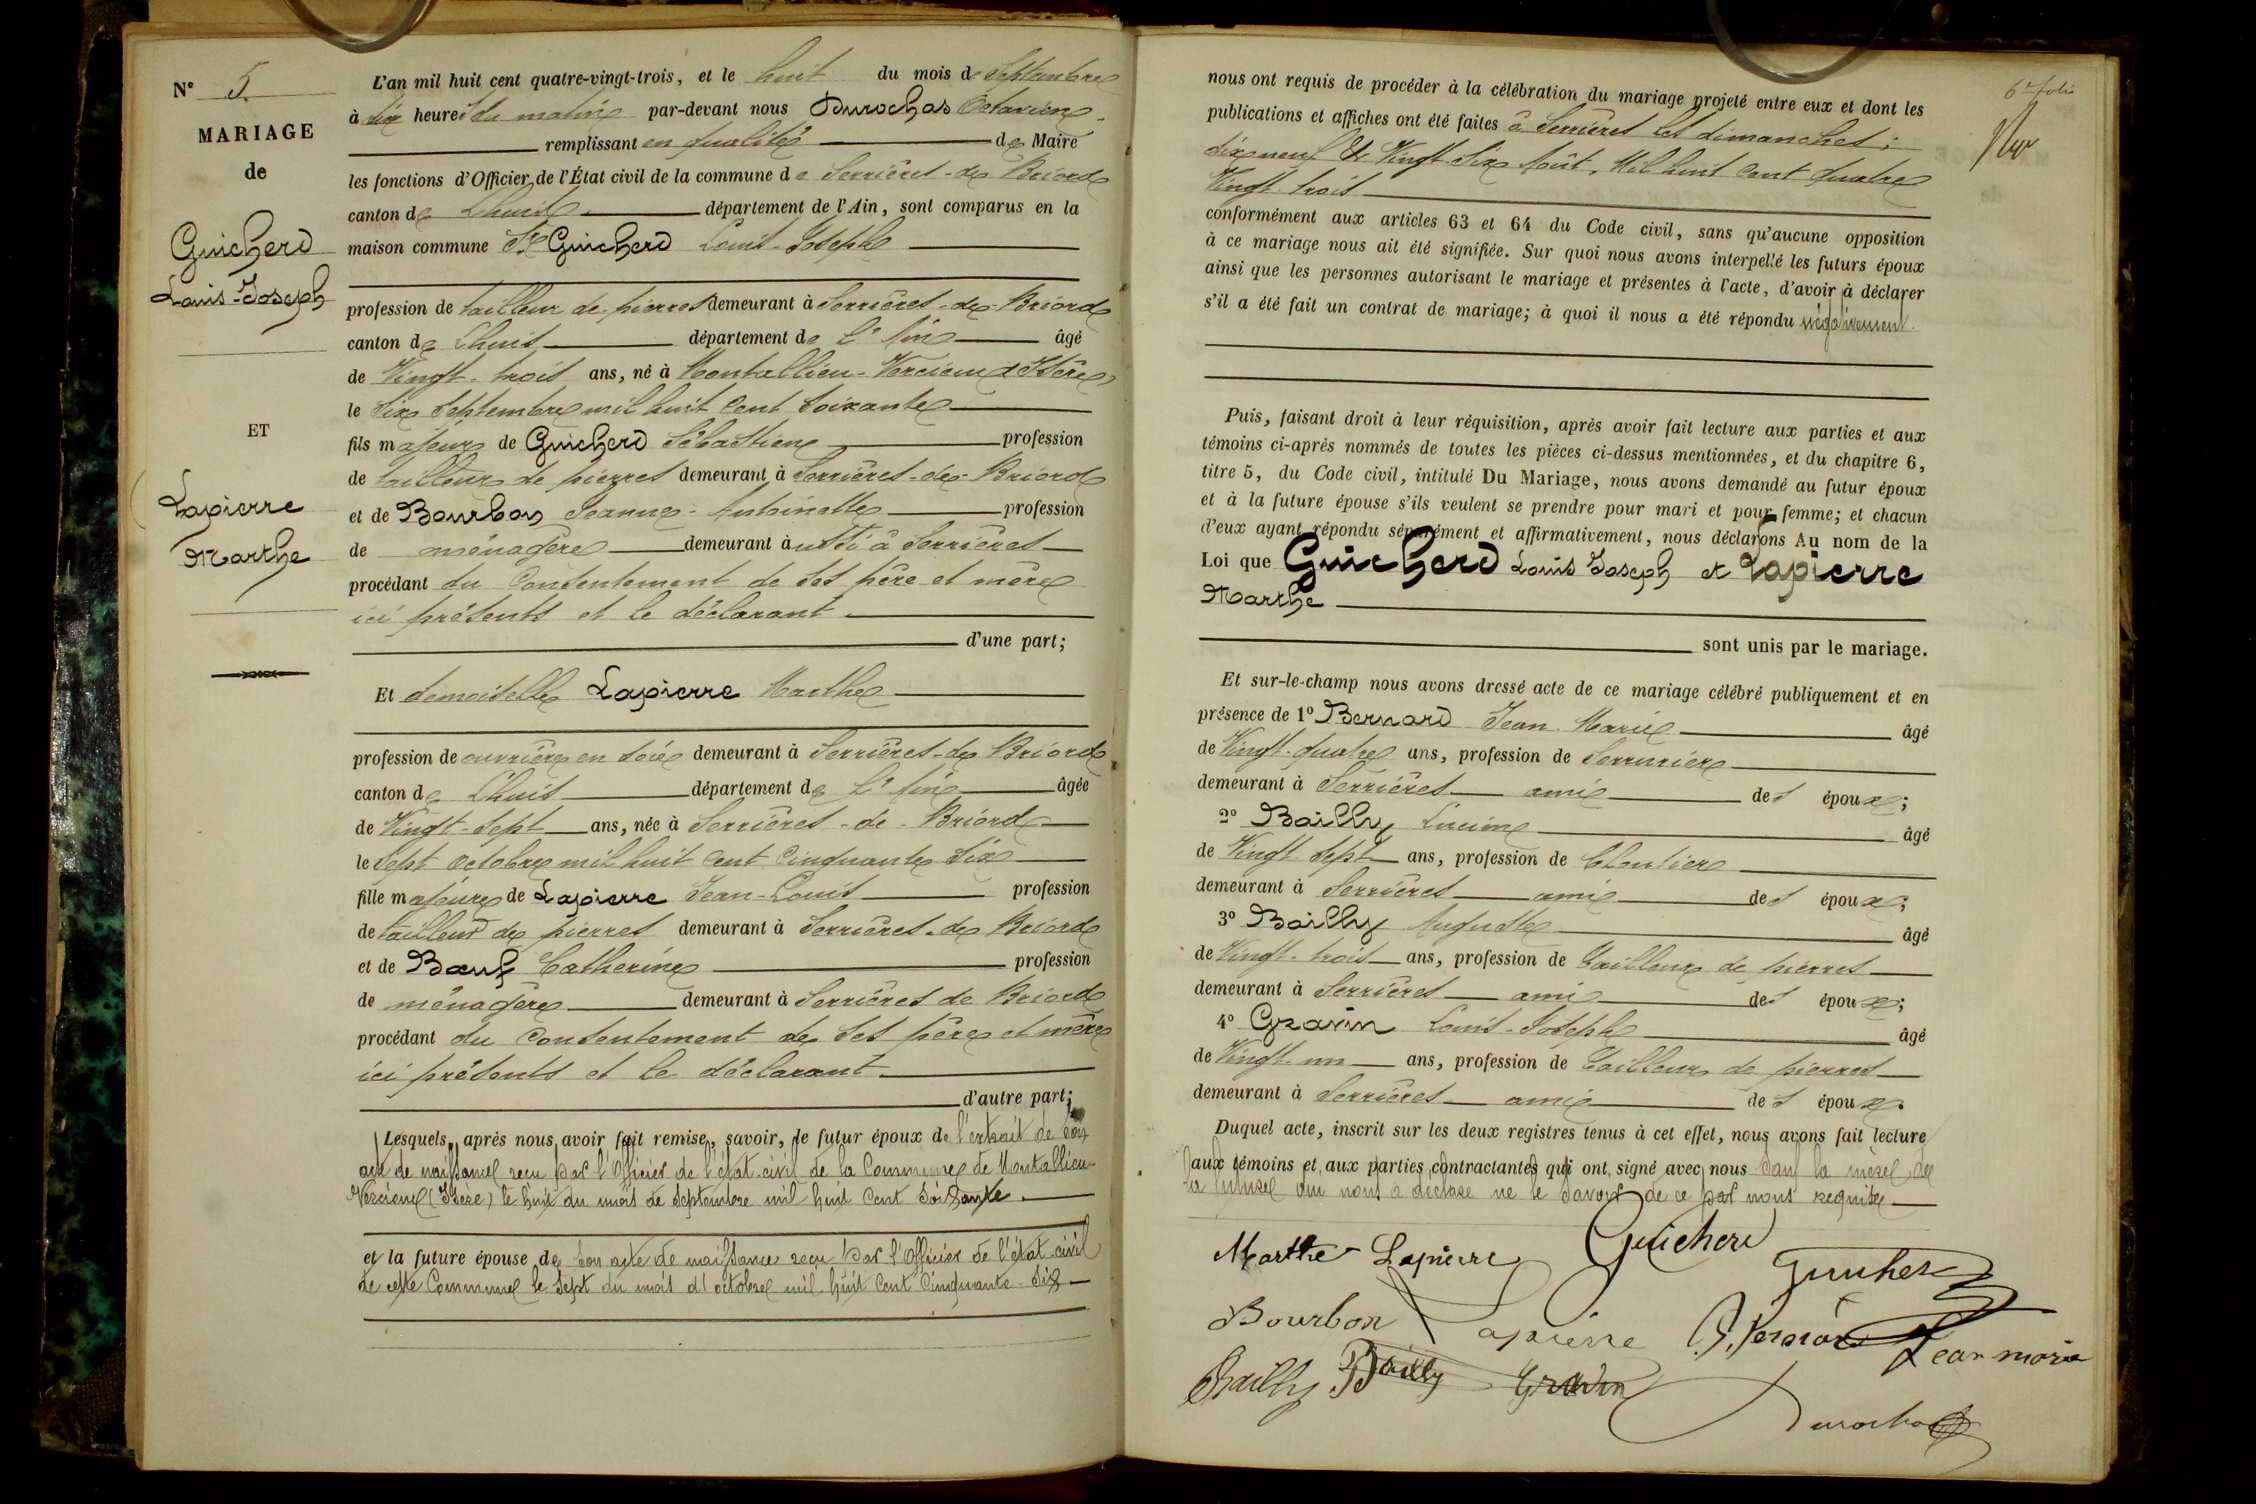 N° 5.
MARIAGE
de
Guicherd
Louis-Joseph
ET
Lapierre
Marthe
L'an mil huit cent quatre-vingt-trois, et le huit du mois de Septembre
à dix heures du matin par-devant nous Durochas Octavien
remplissant en qualité de Maire
les fonctions d'Officier de l'État civil de la commune de Serrières-de-Briord
canton de Lhuis département de l'Ain, sont comparus en la
maison commune Sr Guicherd Louis-Joseph
profession de tailleur de pierres demeurant à Serrières-de-Briord
canton de Lhuis département de L'Ain âgé
de Vingt-trois ans, né à Montallieu-Vercieu (Isère)
le Six Septembre mil huit cent soixante
fils majeur de Guicherd Sébastien profession
de tailleur de pierres demeurant à Serrières-de-Briord
et de Bourbon Jeanne-Antoinette profession
de ménagère demeurant aussi à Serrières
procédant du consentement de ses père et mère
ici présents et le déclarant
d'une part;
Et demoiselle Lapierre Marthe
profession de ouvrière en soie demeurant à Serrières-de-Briord
canton de Lhuis département de L'Ain âgée
de Vingt-Sept ans, née à Serrières-de-Briord
le Sept Octobre mil huit cent cinquante Six
fille majeure de Lapierre Jean-Louis profession
de tailleur de pierres demeurant à Serrières-de-Briord
et de Bœuf Catherine profession
de ménagère demeurant à Serrières de Briord
procédant du consentement de ses père et mère
ici présents et le déclarant
d'autre part;
Lesquels, après nous avoir fait remise, savoir, le futur époux de l'extrait de son
acte de naissance reçu par l'Officier de l'état-civil de la Commune de Montallieu-
Vercieu (Isère) le huit du mois de septembre mil huit cent soixante.
et la future épouse de son acte de naissance reçu par l'Officier de l'état-civil
de cette Commune le sept du mois d'octobre mil huit cent cinquante-six
6e folio
nous ont requis de procéder à la célébration du mariage projeté entre eux et dont les
publications et affiches ont été faites à Serrières les dimanches:
dix neuf & Vingt-Six Août, Mil huit cent quatre
Vingt-trois
conformément aux articles 63 et 64 du Code civil, sans qu'aucune opposition
à ce mariage nous ait été signifiée. Sur quoi nous avons interpellé les futurs époux
ainsi que les personnes autorisant le mariage et présentes à l'acte, d'avoir à déclarer
s'il a été fait un contrat de mariage; à quoi il nous a été répondu négativement.
Puis, faisant droit à leur réquisition, après avoir fait lecture aux parties et aux
témoins ci-après nommés de toutes les pièces ci-dessus mentionnées, et du chapitre 6,
titre 5, du Code civil, intitulé Du Mariage, nous avons demandé au futur époux
et à la future épouse s'ils veulent se prendre pour mari et pour femme; et chacun
d'eux ayant répondu séparément et affirmativement, nous déclarons Au nom de la
Loi que Guicherd Louis Joseph et Lapierre
Marthe
sont unis par le mariage.
Et sur-le-champ nous avons dressé acte de ce mariage célébré publiquement et en
présence de 1° Bernard Jean Marie âgé
de Vingt-quatre ans, profession de Serrurier
demeurant à Serrières ami des époux;
2° Bailly Lucien âgé
de Vingt Sept ans, profession de Cloutier
demeurant à Serrières ami des époux;
3° Bailly Auguste âgé
de Vingt-trois ans, profession de Tailleur de pierres
demeurant à Serrières ami des époux;
4° Gravin Louis-Joseph âgé
de Vingt-un ans, profession de Tailleur de pierres
demeurant à Serrières ami des époux.
Duquel acte, inscrit sur les deux registres tenus à cet effet, nous avons fait lecture
aux témoins et aux parties contractantes qui ont signé avec nous sauf la mère de
la future qui nous a déclaré ne le savoir de ce par nous requise
Marthe Lapierre Guicherd Guicher
Bourbon Lapierre Bernard Jean marie
Bailly Bailly Gravin
Durochas